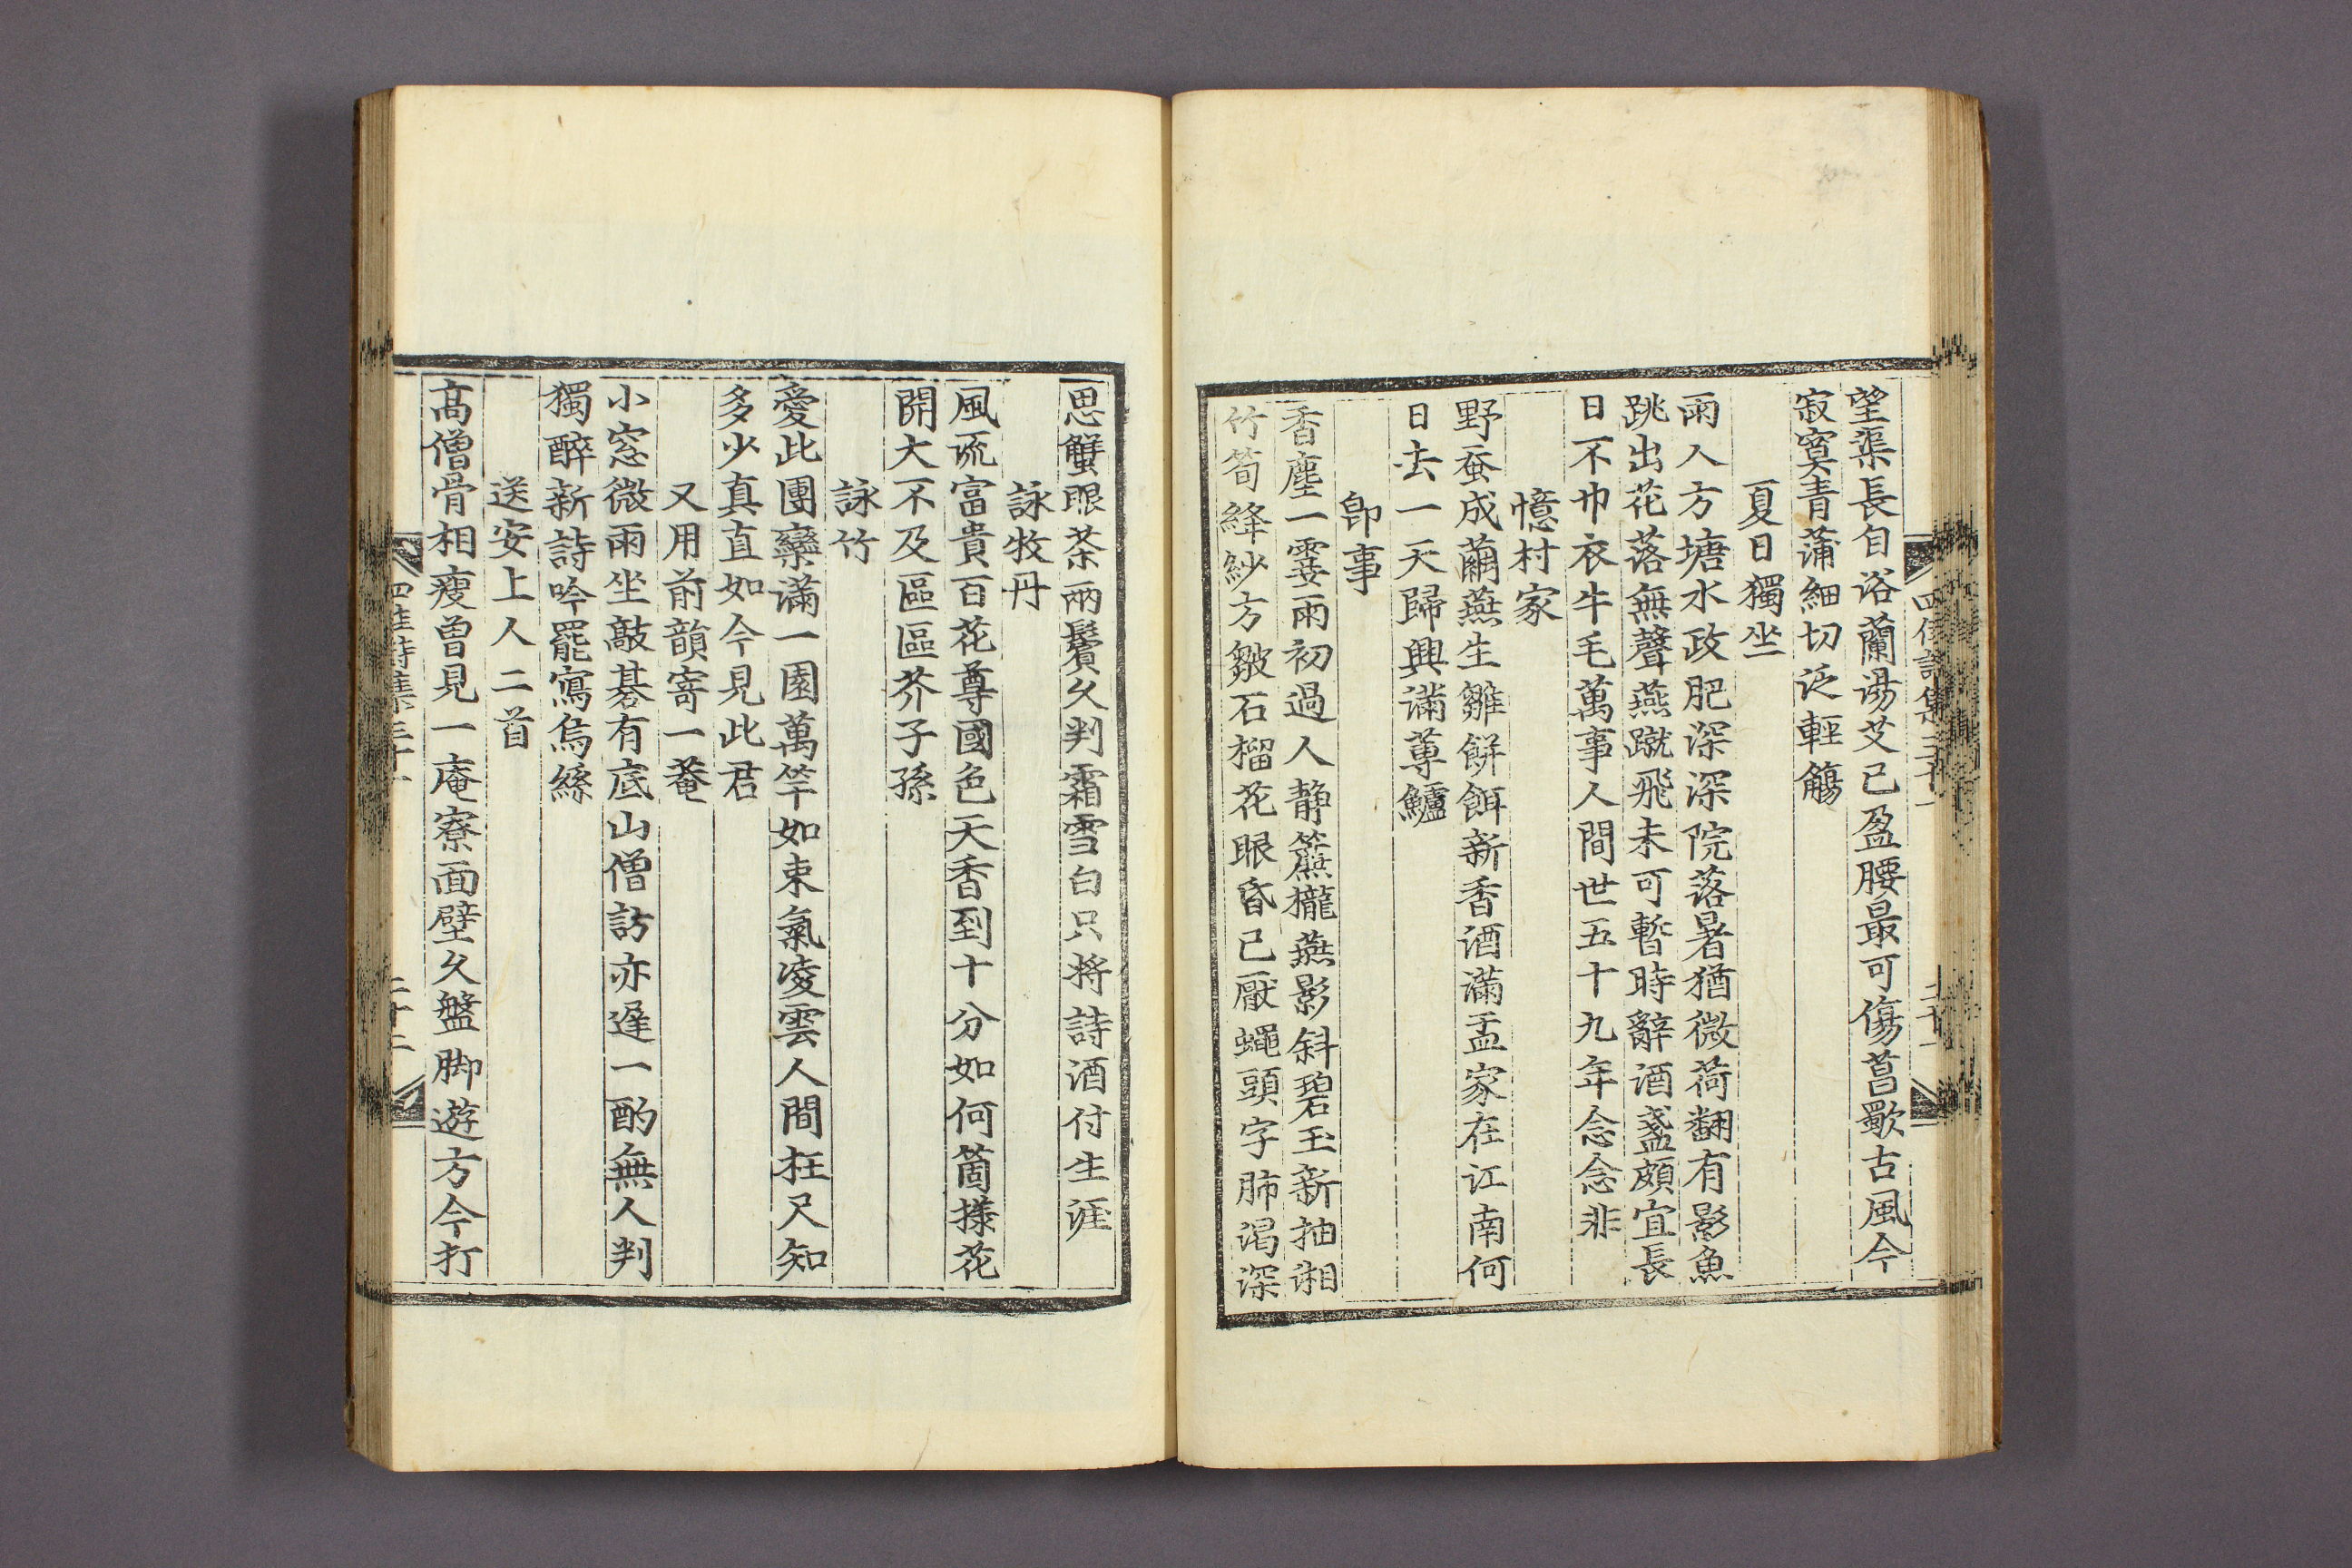 望渠長自浴蘭湯艾已盈腰最可傷菖歜古風今
寂寞青蒲細切泛輕觴
夏日獨坐
雨入方塘水政肥深深院落暑猶微荷翻有影魚
跳出花落無聲燕蹴飛未可暫時辭酒盞頗宜長
日不巾衣牛毛萬事人間世五十九年念念非
憶村家
野蚕成繭燕生雛餠餌新香酒滿盂家在江南何
日去一天歸興滿蓴鱸
卽事
香塵一霎雨初過人靜簾櫳燕影斜碧玉新抽湘
竹筍絳紗方皺石榴花眼昏已厭蠅頭字肺渴深
思蟹眼茶兩鬢久判霜雪白只將詩酒付生涯
詠牧丹
風流富貴百花尊國色天香到十分如何箇㨾花
開大不及區區芥子孫
詠竹
愛此團欒滿一園萬竿如束氣凌雲人間枉尺知
多少真直如今見此君
又用前韻寄一菴
小窓微雨坐敲碁有底山僧訪亦遅一酌無人判
獨醉新詩吟罷寫烏絲
送安上人二首
高僧骨相瘦曽見一庵寮面壁久盤脚遊方今打